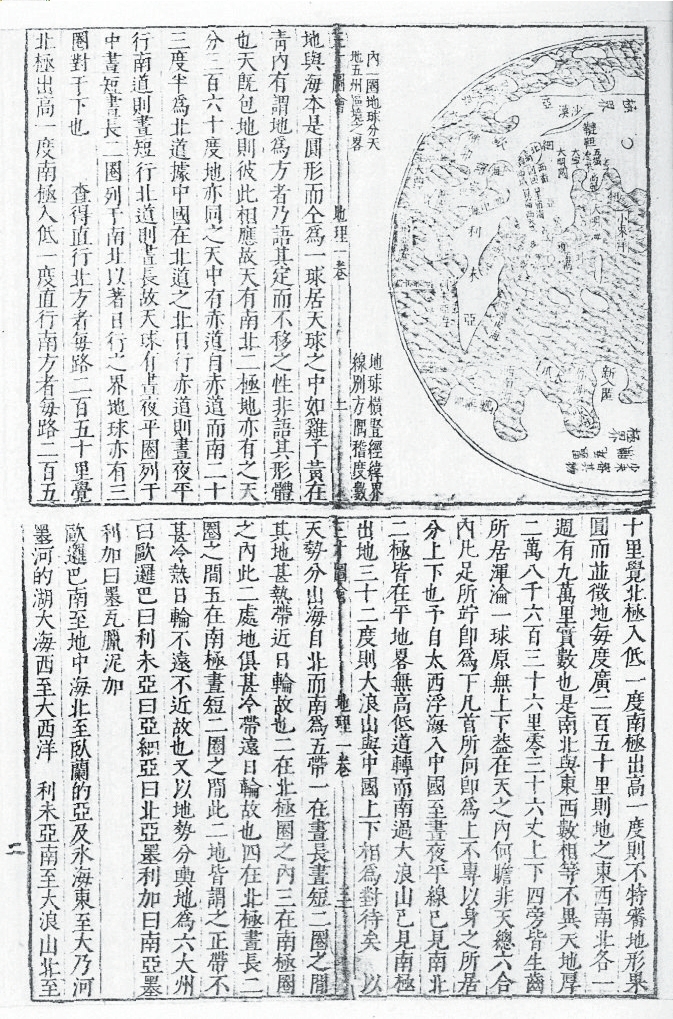 大明國
沙漠
韃靼
利
未
亞
新入匿
內一圈地球分天
地五州溫燠之畧
地球橫豎經緯界
線別方隅稽度數
三才圖會
地理一卷
地與海本是圓形而仝為一球居天球之中如雞子黃在
青內有謂地為方者乃語其定而不移之性非語其形體
也天既包地則彼此相應故天有南北二極地亦有之天
分三百六十度地亦同之天中有赤道自赤道而南二十
三度半為北道據中國在北道之北日行赤道則晝夜平
行南道則晝短行北道則晝長故天球有晝夜平圈列于
中晝短晝長二圈列于南北以著日行之界地球亦有三
圈對于下也　查得直行北方者每路二百五十里覺
北極出高一度南極入低一度直行南方者每路二百五
十里覺北極入低一度南極出高一度則不特審地形果
圓而並徵地每度廣二百五十里則地之東西南北各一
週有九萬里實數也是南北與東西數相等不異天地厚
二萬八千六百三十六里零三十六丈上下四旁皆生齒
所居渾淪一球原無上下蓋在天之內何瞻非天總六合
內凡足所竚卽為下凡首所向卽為上不專以身之所居
分上下也予自太西浮海入中國至晝夜平線已見南北
二極皆在平地畧無高低道轉而南過大浪山已見南極
出地三十二度則大浪山與中國上下相為對待矣　以
三才圖會
地理一卷
天勢分出海自北而南為五帶一在晝長晝短二圈之間
其地甚熱帶近日輪故也二在北極圈之內三在南極圈
之內此二處地俱甚冷帶遠日輪故也四在北極晝長二
圈之間五在南極晝短二圈之間此二地皆謂之正帶不
甚冷熱日輪不遠不近故也又以地勢分輿地為六大州
曰歐邏巴曰利未亞曰亞細亞曰北亞墨利加曰南亞墨
利加曰墨瓦臘泥加
歐邏巴南至地中海北至臥蘭的亞及氷海東至大乃河
墨河的湖大海西至大西洋　利未亞南至大浪山北至
二